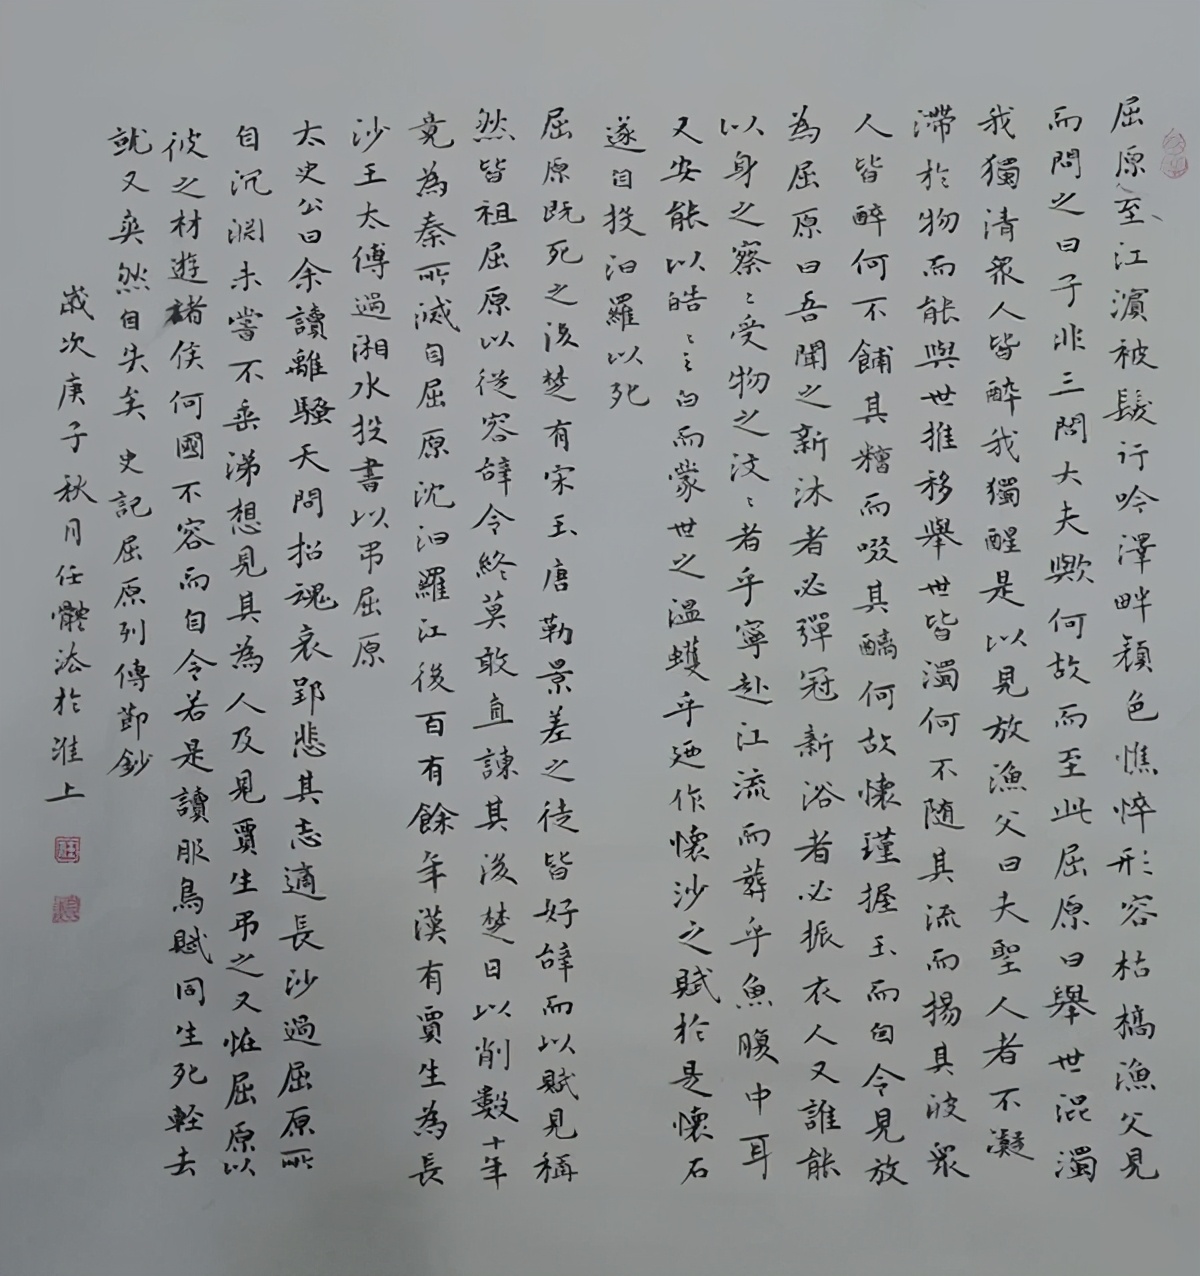 屈原至江濱被髮行吟澤畔顏色憔悴形容枯槁漁父見
而問之曰子非三閭大夫歟何故而至此屈原曰舉世混濁
我獨清眾人皆醉我獨醒是以見放漁父曰夫聖人者不凝
滯於物而能與世推移舉世皆濁何不随其流而揚其波眾
人皆醉何不餔其糟而啜其醨何故懷瑾握玉而自令見放
為屈原曰吾聞之新沐者必彈冠新浴者必振衣人又誰能
以身之察〻受物之汶〻者乎寧赴江流而葬乎魚腹中耳
又安能以皓〻之白而蒙世之溫蠖乎廼作懷沙之賦於是懷石
遂自投汨羅以死
屈原既死之後楚有宋玉唐勒景差之徒皆好辭而以賦見稱
然皆祖屈原以從容辭令終莫敢直諫其後楚日以削數十年
竟為秦所滅自屈原沈汨羅江後百有餘年漢有賈生為長
沙王太傅過湘水投書以弔屈原
太史公曰余讀離騷天問招魂哀郢悲其志適長沙過屈原所
自沉淵未嘗不垂涕想見其為人及見賈生弔之又怪屈原以
彼之材遊諸侯何國不容而自令若是讀服鳥賦同生死輕去
就又爽然自失矣 史記屈原列傳節鈔
歲次庚子秋月任體法於淮上